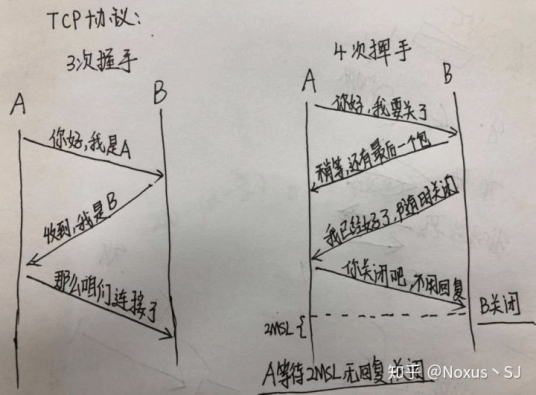 TCP协议:
3次握手
A
B
你好,我是A
收到,我是B
那么咱们连接了
4次挥手
A
B
你好,我要关了
稍等,还有最后一个包
我已经好了,随时关闭
你关闭吧,不用回复
2MSL
B关闭
A等待2MSL无回复关闭
知乎 @Noxus丶SJ